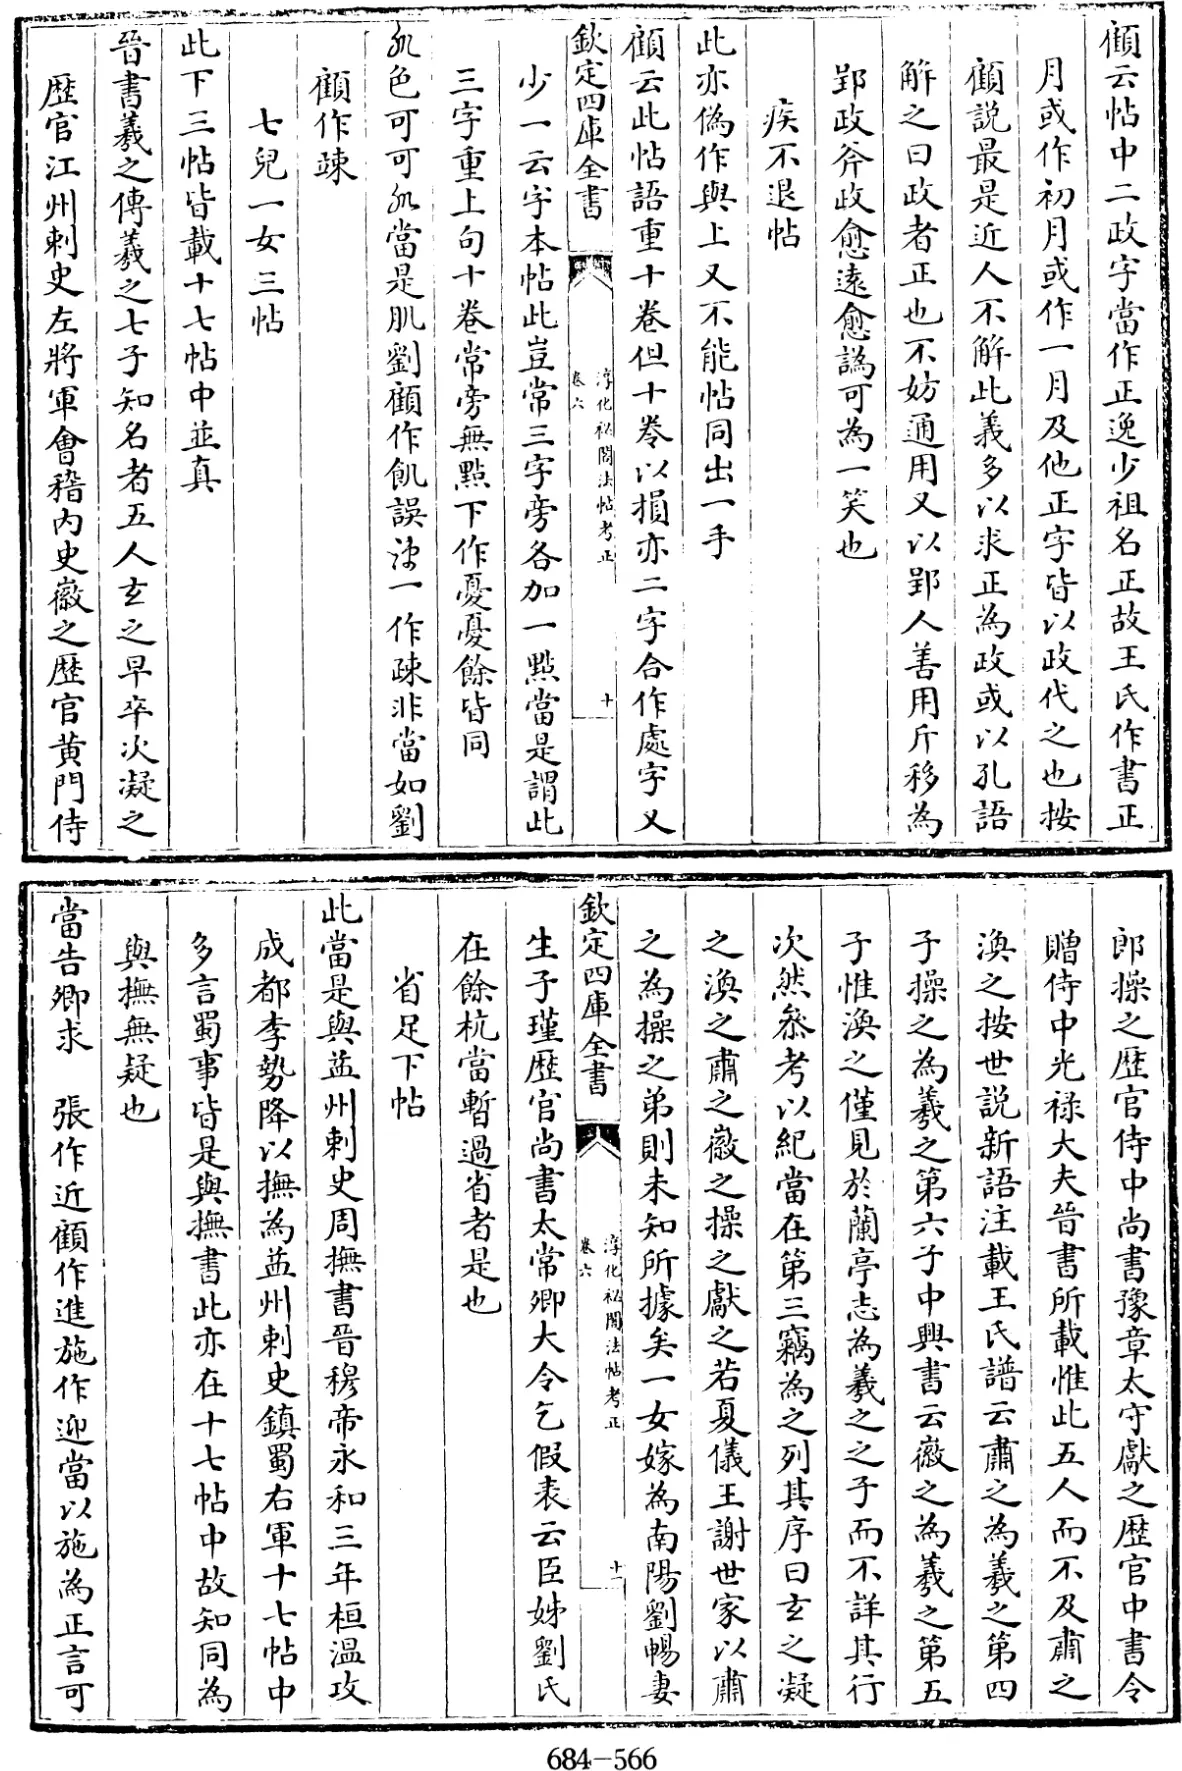 顧云帖中二政字當作正逸少祖名正故王氏作書正
月或作初月或作一月及他正字皆以政代之也按
顧說最是近人不解此義多以求正為政或以孔語
解之曰政者正也不妨通用又以郢人善用斤移為
郢政斧政愈遠愈譌可為一笑也
疾不退帖
此亦偽作與上又不能帖同出一手
顧云此帖語重十卷但十卷以損亦二字合作處字又
欽定四庫全書
淳化祕閣法帖考正
卷六
十
少一云字本帖此豈常三字旁各加一點當是謂此
三字重上句十卷常旁無點下作憂憂餘皆同
色可可當是肌劉顧作飢誤一作疎非當如劉
顧作竦
七兒一女三帖
此下三帖皆載十七帖中並真
晉書羲之傳羲之七子知名者五人玄之早卒次凝之
歷官江州刺史左將軍會稽內史徽之歷官黃門侍
郎操之歷官侍中尚書豫章太守獻之歷官中書令
贈侍中光祿大夫晉書所載惟此五人而不及肅之
渙之按世說新語注載王氏譜云肅之為羲之第四
子操之為羲之第六子中興書云徽之為羲之第五
子惟渙之僅見於蘭亭志為羲之之子而不詳其行
次然叅考以紀當在第三竊為之列其序曰玄之凝
之渙之肅之徽之操之獻之若夏儀王謝世家以肅
之為操之弟則未知所據矣一女嫁為南陽劉暢妻
欽定四庫全書
淳化祕閣法帖考正
卷六
十一
生子瑾歷官尚書太常卿大令乞假表云臣姊劉氏
在餘杭當暫過省者是也
省足下帖
此當是與益州刺史周撫書晉穆帝永和三年桓溫攻
成都李勢降以撫為益州刺史鎮蜀右軍十七帖中
多言蜀事皆是與撫書此亦在十七帖中故知同為
與撫無疑也
當告卿求　張作近顧作進施作迎當以施為正言可
684-566